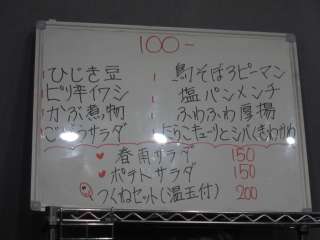 100-
ひじき豆
ピリ辛イワシ
かぶ煮物
ごぼうサラダ
鳥そぼろピーマン
塩パンメンチ
ふわふわ厚揚
たらこキューリとシバ(きもかわ
春雨サラダ 150
ポテトサラダ 150
つくねセット(温玉付) 200